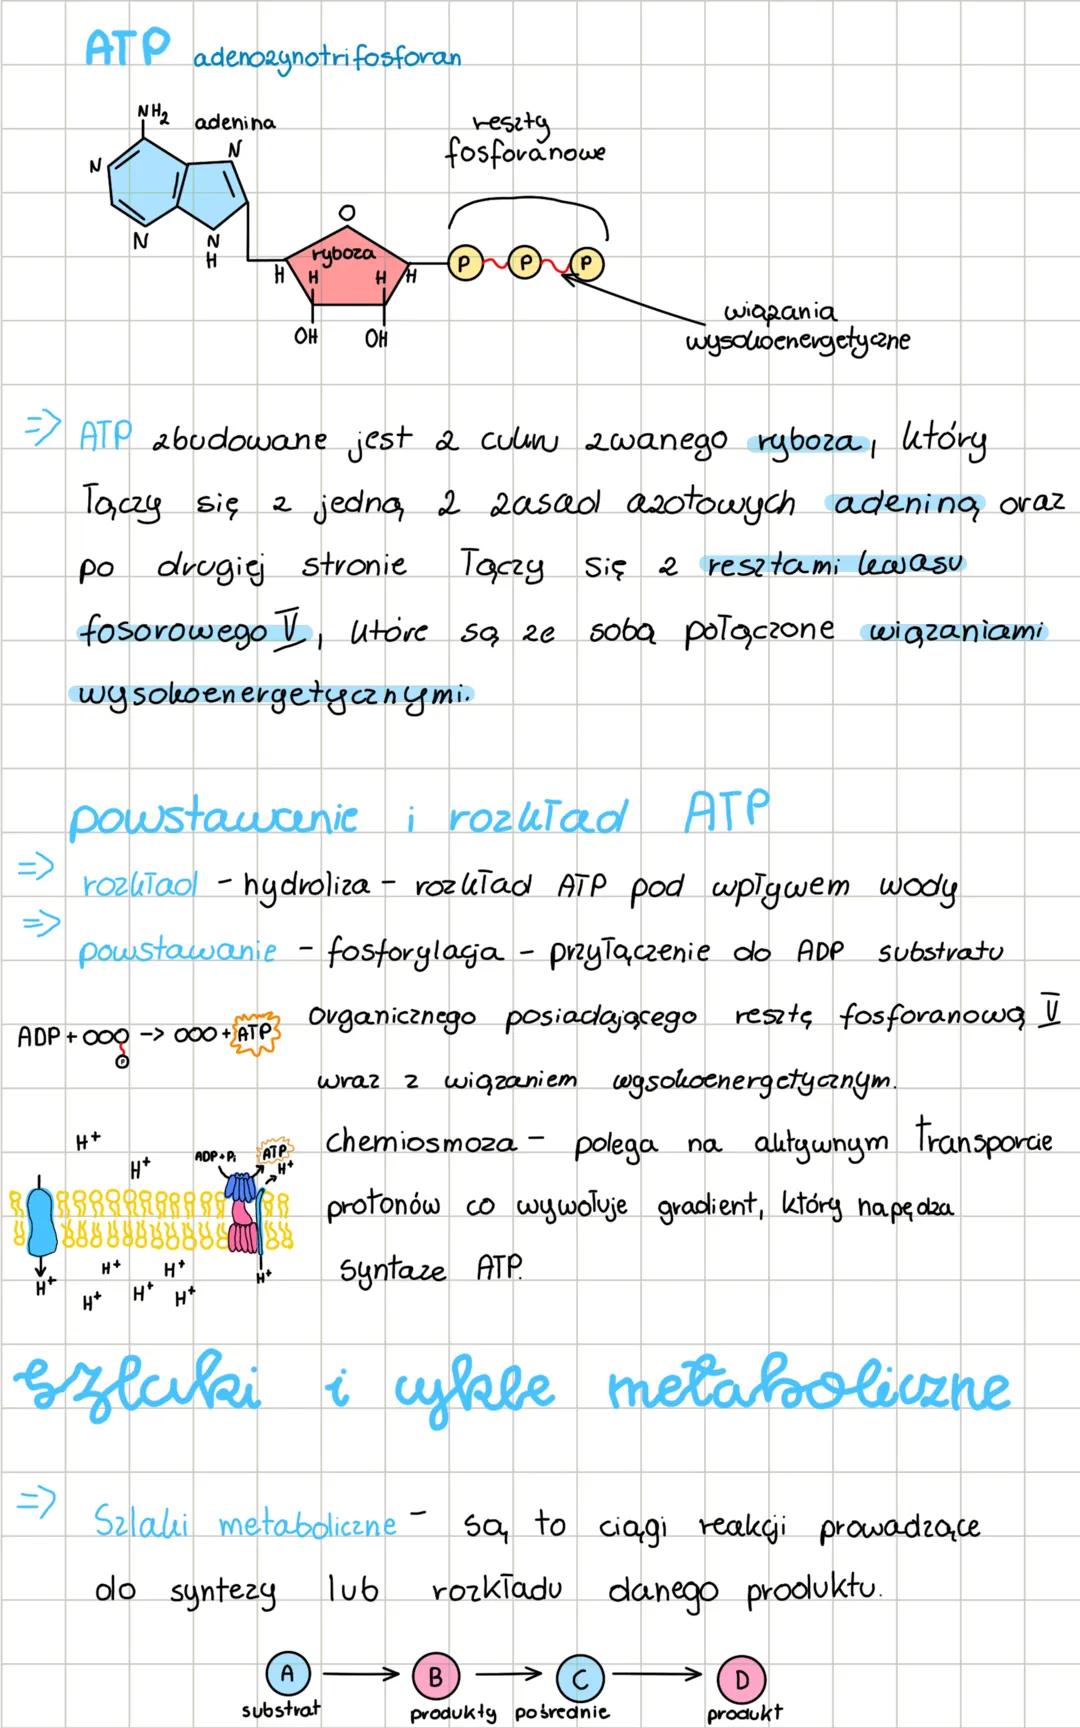 ATP adenozynotrifosforan
NH₂ adenina
reszty
fosforanowe
N
N
N
N
H
O
ryboza
H H H H
OH OH
P P P
wiązania
wysokoenergetyczne
=> ATP zbudowane jest z cukru zwanego ryboza, który
łączy się z jedną z zasad azotowych adeniną oraz
po drugiej stronie łączy się z resztami kwasu
fosorowego V, które są ze sobą połączone wiązaniami
wysokoenergetycznymi.
powstawanie i rozkład ATP
=> rozkład - hydroliza - rozkład ATP pod wpływem wody
=> powstawanie - fosforylacja - przyłączenie do ADP substratu
organicznego posiadającego resztę fosforanową V
wraz z wiązaniem wysokoenergetycznym.
ADP + OOO -> OOO + ATP
P
chemiosmoza - polega na aktywnym transporcie
protonów co wywołuje gradient, który napędza
syntaze ATP.
H⁺
H⁺
ADP+Pi ATP
H⁺
H⁺ H⁺ H⁺ H⁺
H⁺ H⁺ H⁺
szlaki i cykle metaboliczne
=> Szlaki metaboliczne - są to ciągi reakcji prowadzące
do syntezy lub rozkładu danego produktu.
A B C D
substrat produkty pośrednie produkt